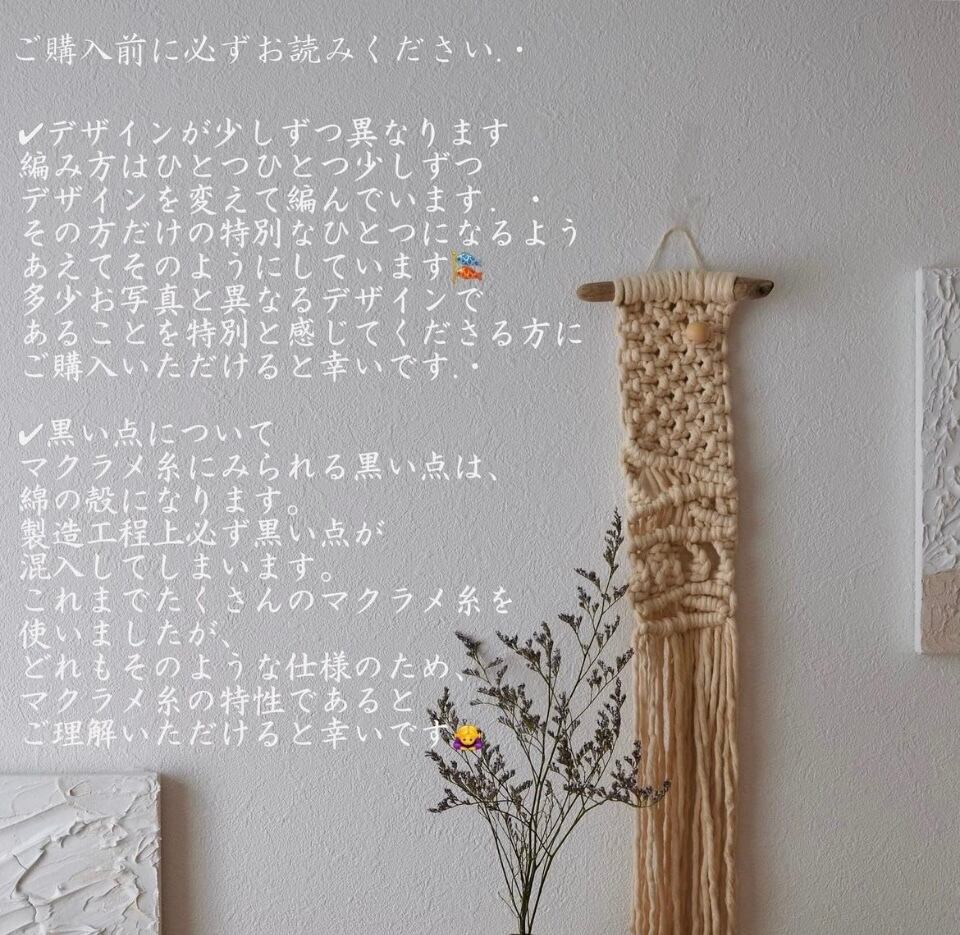 ご購入前に必ずお読みください.・
✔デザインが少しずつ異なります
編み方はひとつひとつ少しずつ
デザインを変えて編んでいます.・
その方だけの特別なひとつになるよう
あえてそのようにしています🎏
多少お写真と異なるデザインで
あることを特別と感じてくださる方に
ご購入いただけると幸いです.・
✔黒い点について
マクラメ糸にみられる黒い点は、
綿の殻になります。
製造工程上必ず黒い点が
混入してしまいます。
これまでたくさんのマクラメ糸を
使いましたが、
どれもそのような仕様のため、
マクラメ糸の特性であると
ご理解いただけると幸いです🙇‍♀️